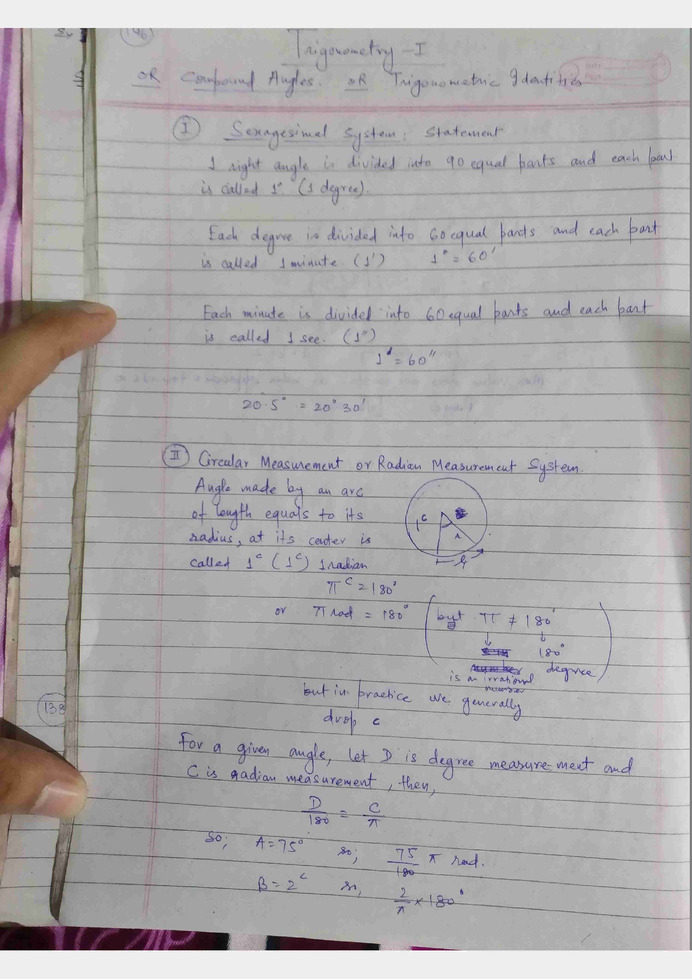 146
Trigonometry - I
OR Compound Angles. OR Trigonometric Identities
I Sexagesimal System: Statement
1 right angle is divided into 90 equal parts and each part
is called 1° (1 degree).
Each degree is divided into 60 equal parts and each part
is called 1 minute (1') 1° = 60'
Each minute is divided into 60 equal parts and each part
is called 1 sec. (1")
1' = 60"
20.5° = 20° 30'
II Circular Measurement or Radian Measurement System.
Angle made by an arc
of length equals to its
radius, at its center is
called 1ᶜ (1ᶜ) 1 radian
1ᶜ
r
πᶜ = 180°
or π rad = 180° (but π ≠ 180°
↓ ↓
180°
is an irrational number degree)
but in practice we generally
drop c
138
For a given angle, let D is degree measurement and
C is radian measurement, then,
D/180 = C/π
so; A = 75° so; 75/180 π rad.
B = 2ᶜ so, 2/π × 180°